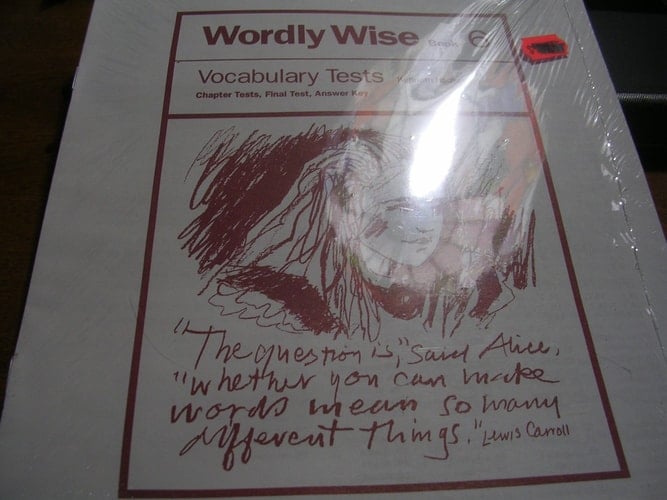 Wordly Wise Book 6
Vocabulary Tests
Chapter Tests, Final Test, Answer Key
"The question is," said Alice,
"whether you can make
words mean so many
different things." Lewis Carroll